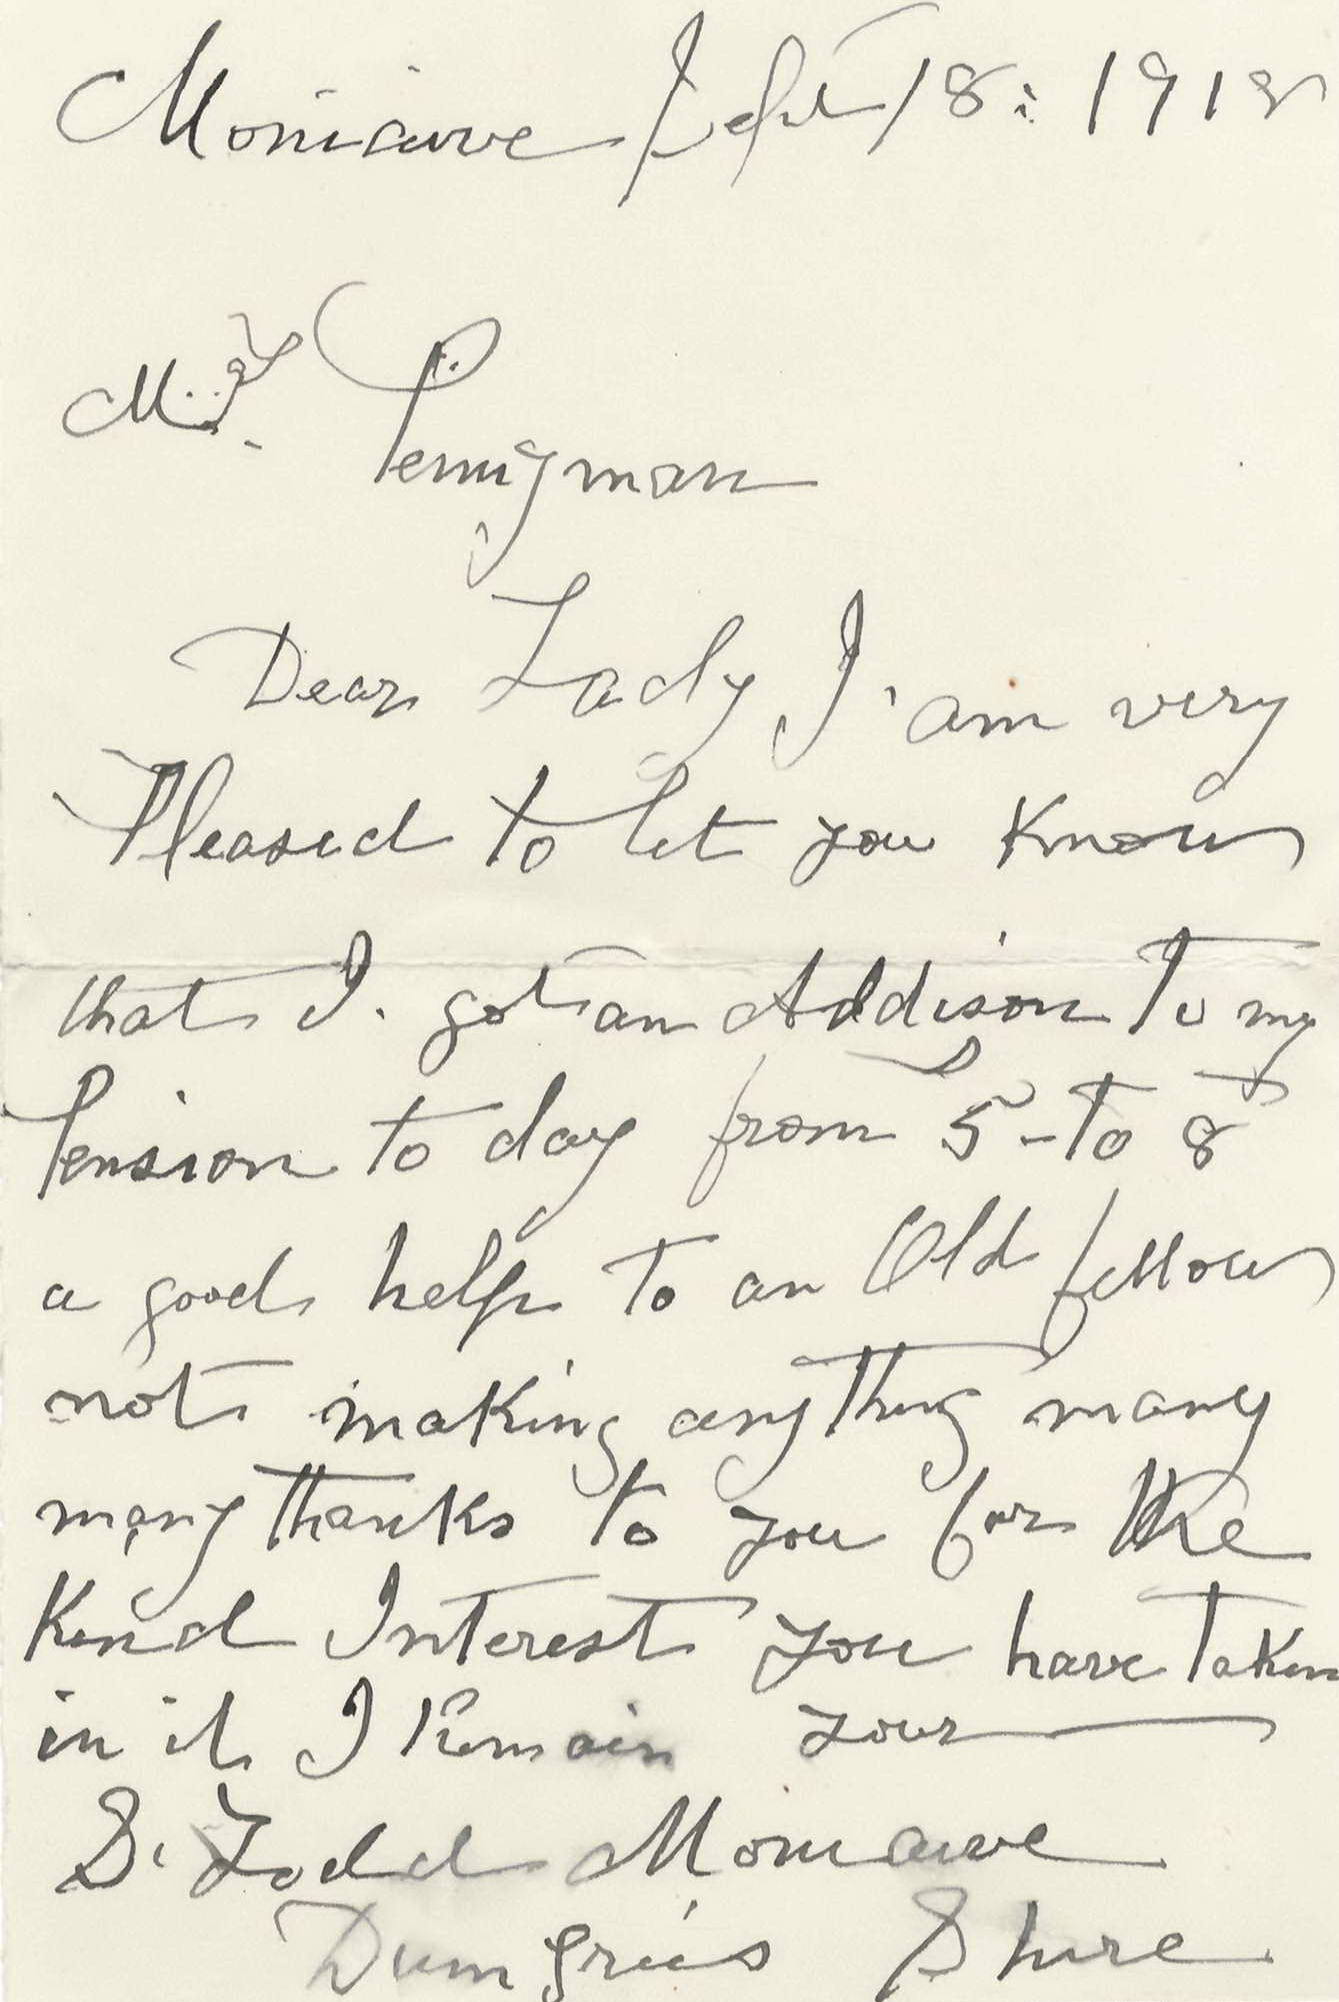 Moniaive Sept 18: 1918
Mrs
Pennyman
Dear Lady I am very
Pleased to let you Know
that I. got an Addison To my
Pension to day from 5 - To 8
a good help To an Old fellow
not making anything many
many thanks To you for the
Kind Interest you have Taken
in it I Remain your
S. Todd Moniaive
Dumfries Shire